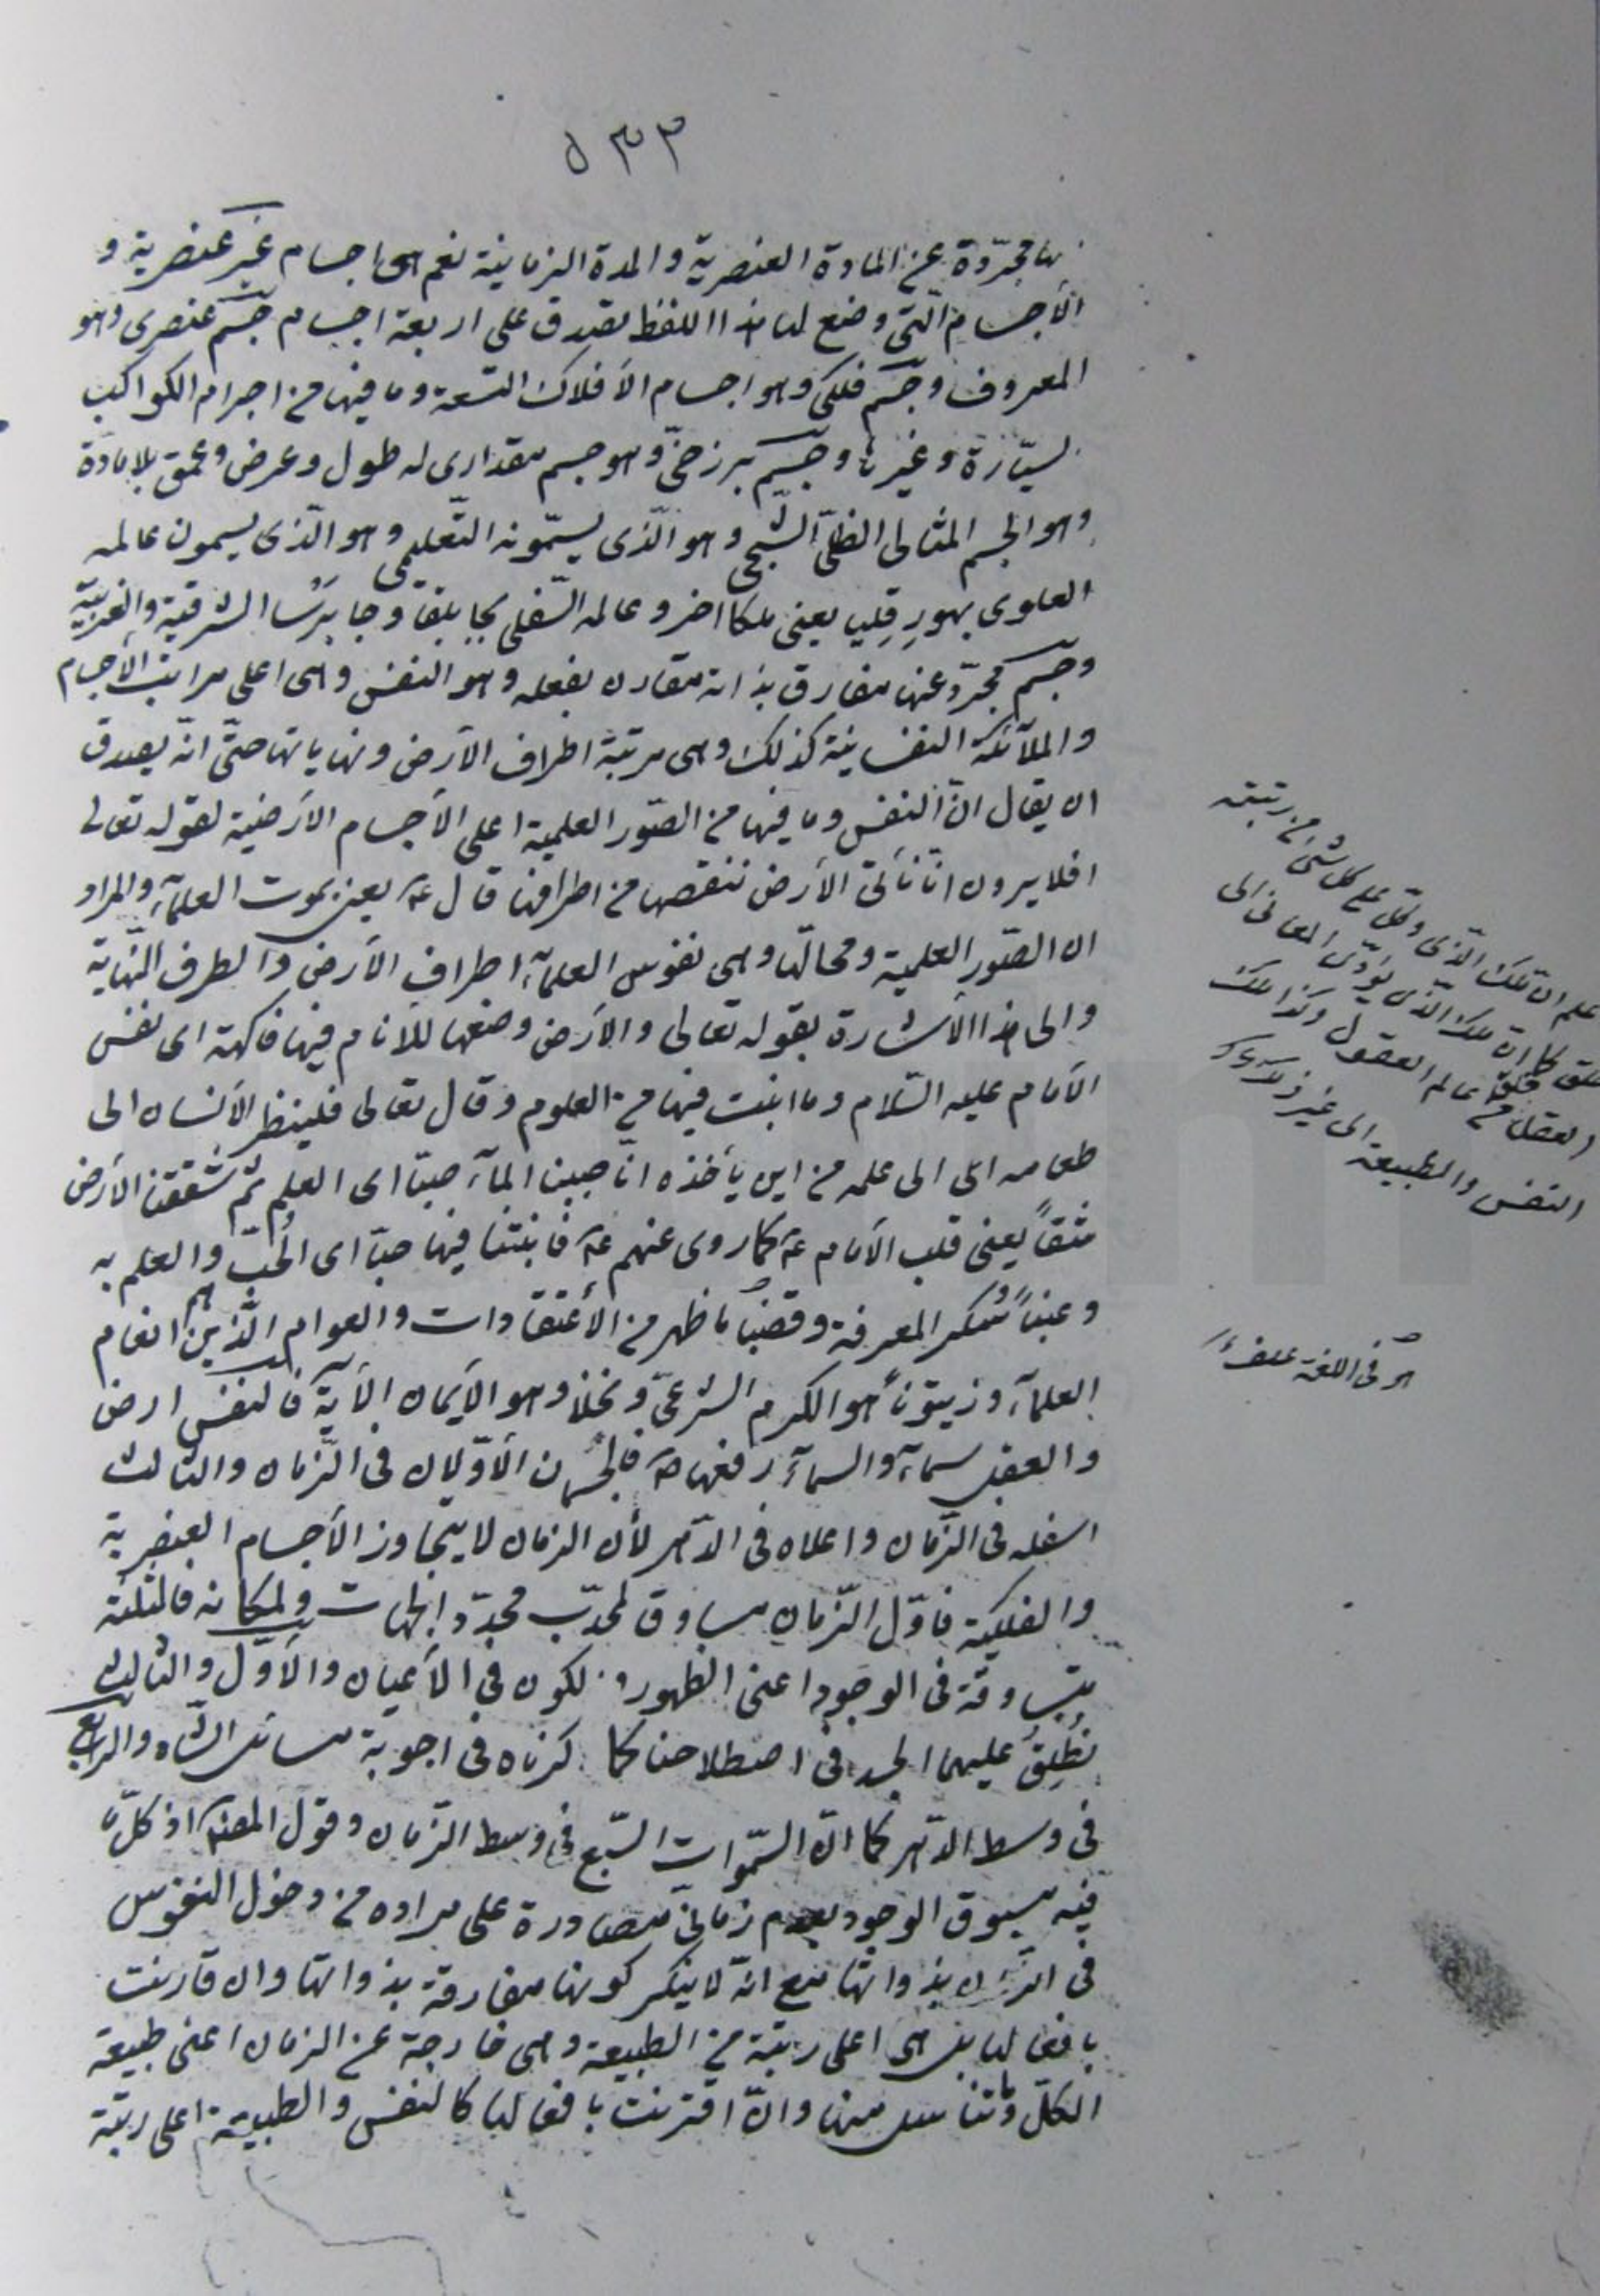 ٥٣٣
نها مجرّدة عن المادة العنصرية والمدة الزمانية نعم هى اجسام غير عنصرية و
الأجسام الّتى وضع لها هذا اللفظ تصدق على اربعة اجسام جسم عنصرى وهو
المعروف وجسم فلكى وهو اجسام الأفلاك التسعة وما فيها من اجرام الكواكب
لسيّارة وغيرها وجسم برزخىّ وهو جسم مقدارى له طول وعرض وعمق بلا مادّة
وهو الجسم المثالى الظلّى الشبحى وهو الّذى يسمّونه التّعليمى وهو الّذى يسمون عالمه
العلوى بهورقليا يعنى ملكا اخر وعالمه السّفلى بجابلقا وجابرسا الشرقية والغربيّة
وجسم مجرّد عنها مفارق بذاته مقارن بفعله وهو النفس وهى اعلى مراتب الأجسام
والملآئكة النفسانية كذلك وهى مرتبة اطراف الأرض ونهاياتها حتّى انّه يصدق
ان يقال انّ النفس وما فيها من الصّور العلمية اعلى الأجسام الأرضية لقوله تعالى
افلا يرون انّا نأتى الأرض ننقصها من اطرافها قال ع يعنى بموت العلمآء والمراد
ان الصّور العلمية ومحالّها وهى نفوس العلمآء اطراف الأرض والطرف النّهاية
والى هذا الأشارة بقوله تعالى والأرض وضعها للأنام فيها فاكهة اى نفس
الأمام عليه السّلام وما انبت فيها من العلوم وقال تعالى فلينظر الأنسان الى
طعامه اى الى علمه من اين يأخذه انّا صببنا المآء صبّا اى العلم ثم شققنا الأرض
شقّاً يعنى قلب الأمام ع كما روى عنهم ع فانبتنا فيها حبّا اى الحُبّ والعلم به
وعنباً سُكر المعرفة وقضباً ما ظهر من الأعتقادات والعوام الّذين هم انعام
العلمآء وزيتوناً هو الكرم الشرعىّ ونخلا وهو الأيمان الآية فالنفس ارض
والعقل سمآء والسمآء رفعها فالجسمان الأوّلان فى الزّمان والثالث
اسفله فى الزّمان واعلاه فى الدّهر لأن الزمان لا يتجاوز الأجسام العنصرية
والفلكية فاوّل الزّمان مساوق لمحدّب محدّد الجهات ولمكانه فالثلثة
متساوقة فى الوجود اعنى الظهور و لكون فى الأعيان والأوّل والثالث
نُطلِقُ عليهما الجسد فى اصطلاحنا كما ذكرناه فى اجوبة مسائل الشاه والرابع
فى وسط الدّهر كما انّ السّموات السّبع فى وسط الزّمان وقول المصنف اذ كلّ ما
فيه مسبوق الوجود بعدم زمانىّ مصادرة على مراده من دخول النفوس
فى الزّمان بذواتها مع انّه لا ينكر كونها مفارقة بذواتها وان قارنت
بافعالها بل هى اعلى رتبة من الطبيعة وهى خارجة عن الزمان اعنى طبيعة
الكلّ وما تناسل منها وان اقترنت بافعالها كالنفس والطبيعة اعلى رتبة
علم ان ملك الّذى وكّل على كل شئ من رتبته
خلق كما ان ملك الّذى يؤدّى المعانى الى
العقل خلق من عالم العقول وكذا ملك
النفس والطبيعة الى غير ذلك
هو فى اللغة علف